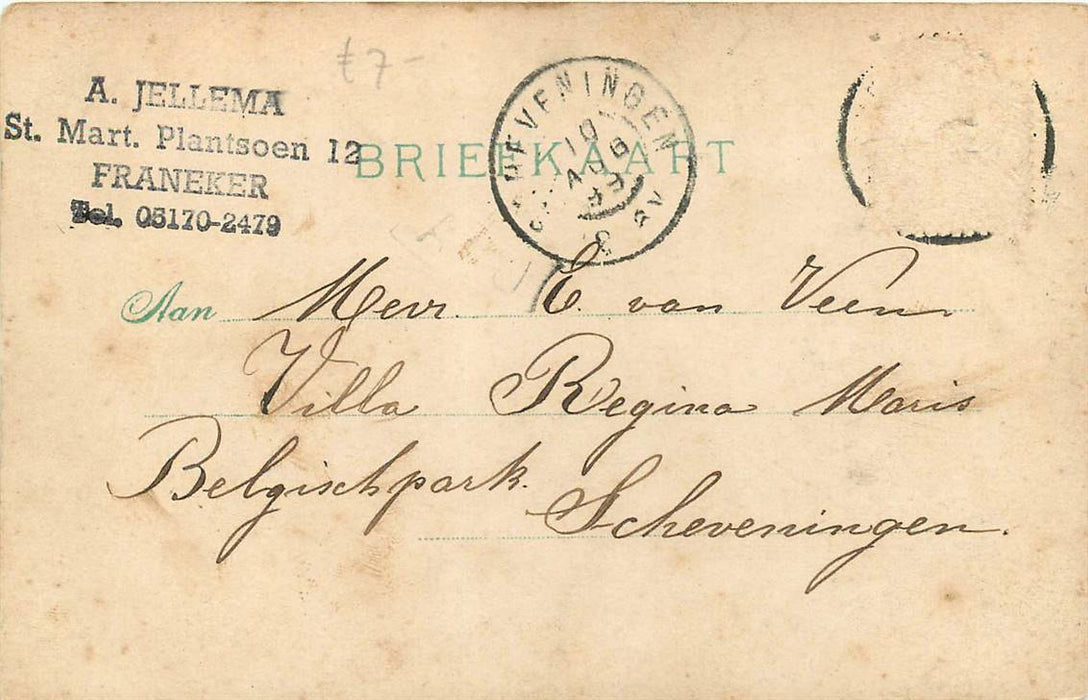 f 7-
A. JELLEMA
St. Mart. Plantsoen 12
FRANEKER
Tel. 05170-2479
BRIEFKAART
SCHEVENINGEN
10 AUG
Aan Mevr. E. van Veen
Villa Regina Maris
Belgischpark.
Scheveningen.